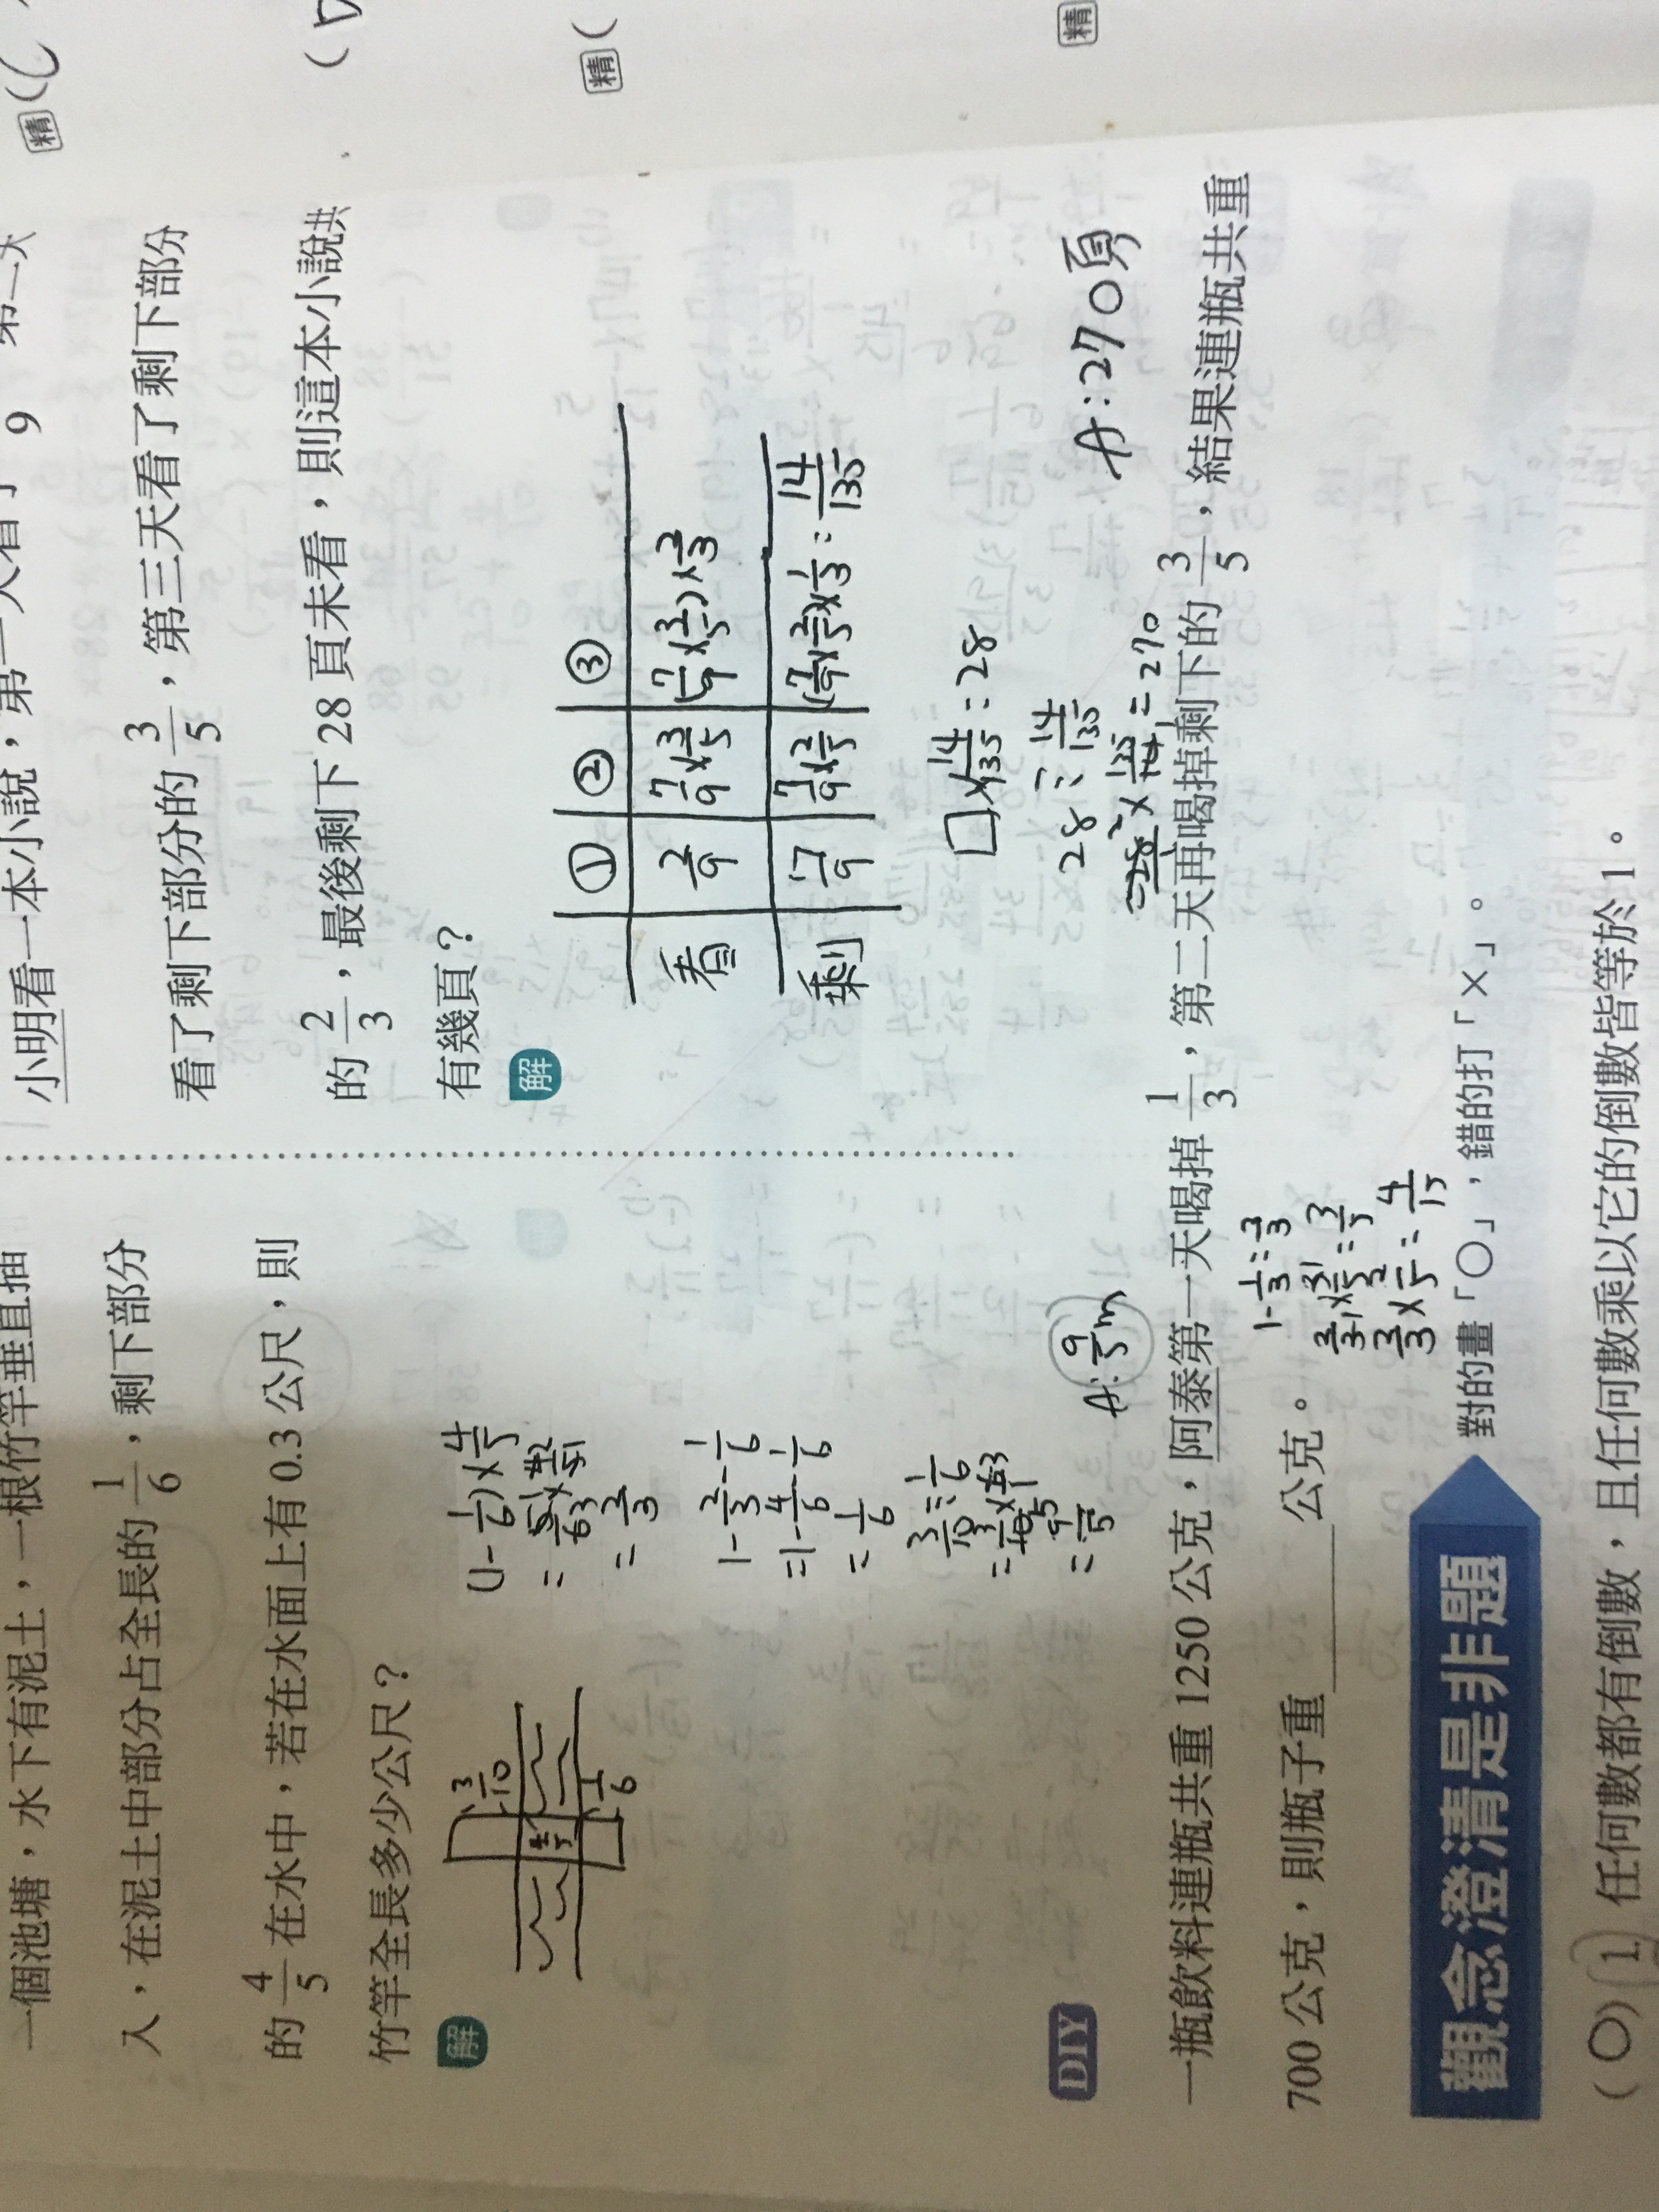 一個池塘，水下有泥土，一根竹竿垂直插
入，在泥土中部分占全長的 1/6，剩下部分
的 4/5 在水中，若在水面上有 0.3 公尺，則
竹竿全長多少公尺？
解
3/10
4/5
1/6
(1-1/6)×4/5
=2/3
1-2/3-1/6
=1-4/6-1/6
=1/6
3/10÷1/6
=9/5
A:9/5m
小明看一本小說，第一天看了
9
看了剩下部分的 3/5，第三天看了剩下部分
的 2/3，最後剩下 28 頁未看，則這本小說共
有幾頁？
解
① ② ③
看 2/9 7/9×3/5 (7/9×2/5)×2/3
剩 7/9 7/9×2/5 (7/9×2/5)×1/3=14/135
□×14/135=28
28÷14/135
=28×135/14=270
A:270頁
DIY
一瓶飲料連瓶共重 1250 公克，阿泰第一天喝掉 1/3，第二天再喝掉剩下的 3/5，結果連瓶共重
700 公克，則瓶子重 公克。
1-1/3=2/3
2/3×3/5=2/5
2/3×2/5=4/15
觀念澄清是非題
對的畫「○」，錯的打「×」。
(○) 1 任何數都有倒數，且任何數乘以它的倒數皆等於 1。
精 (
精 (
精